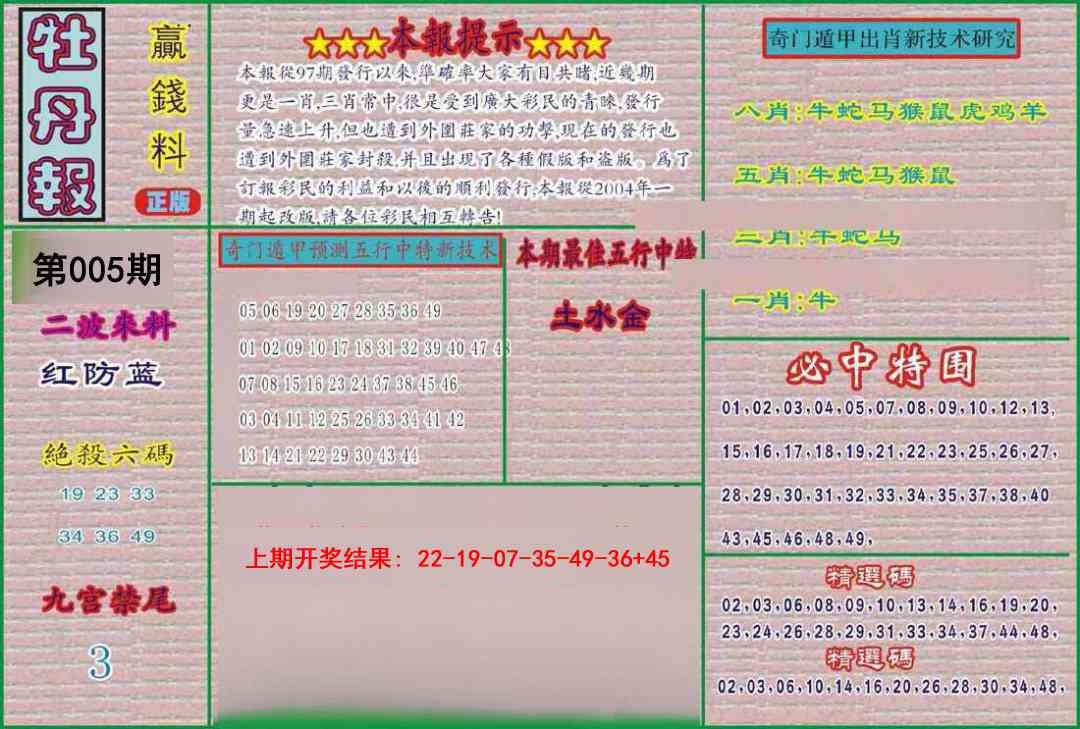 牡丹報
贏錢料
正版
第005期
二波來料
红防蓝
絕殺六碼
19 23 33
34 36 49
九宫禁尾
3
★★★本報提示★★★
本報從97期發行以來,準確率大家有目共睹,近幾期
更是一肖,三肖常中,很是受到廣大彩民的青睞,發行
量急速上升,但也遭到外圍莊家的功擊,现在的發行也
遭到外圍莊家封殺,并且出现了各種假版和盗版。爲了
訂報彩民的利益和以後的順利發行,本報從2004年一
期起改版,請各位彩民相互轉告!
奇门遁甲预测五行中特新技术
05 06 19 20 27 28 35 36 49
01 02 09 10 17 18 31 32 39 40 47 48
07 08 15 16 23 24 37 38 45 46
03 04 11 12 25 26 33 34 41 42
13 14 21 22 29 30 43 44
本期最佳五行中特
土水金
上期开奖结果: 22-19-07-35-49-36+45
奇门遁甲出肖新技术研究
八肖:牛蛇马猴鼠虎鸡羊
五肖:牛蛇马猴鼠
三肖:牛蛇马
一肖:牛
必中特围
01,02,03,04,05,07,08,09,10,12,13,
15,16,17,18,19,21,22,23,25,26,27,
28,29,30,31,32,33,34,35,37,38,40
43,45,46,48,49,
精選碼
02,03,06,08,09,10,13,14,16,19,20,
23,24,26,28,29,31,33,34,37,44,48,
精選碼
02,03,06,10,14,16,20,26,28,30,34,48,